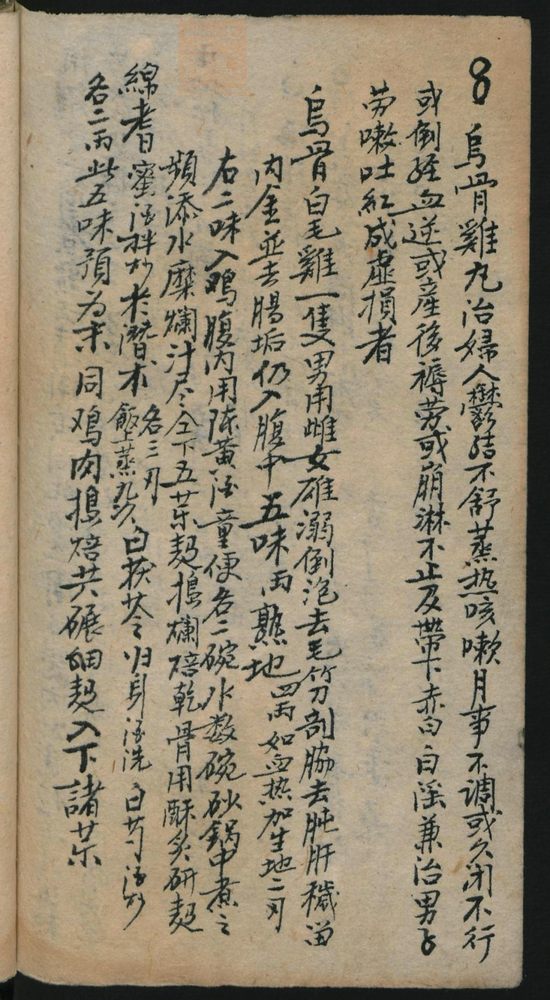 8 烏骨雞丸治婦人鬱结不舒蒸热咳嗽月事不调或久闭不行
或倒经血逆或産後褥劳或崩淋不止及帶下赤白白淫兼治男子
劳嗽吐紅成虛損者
烏骨白毛雞一隻男用雌女雄溺倒泡去毛竹刀剖脇去肫肝穢畄
内金並去腸垢仍入腹中 五味两 熟地四两如血热加生地二刄
右二味入鸡腹内用陈黄酒童便各二碗水数碗砂鍋中煮之
頻添水糜爛汁尽仝下五茱麪搗爛焙乾骨用酥炙研麪
綿耆蜜酒拌炒於潛术各三刄飯上蒸九次白茯苓归身酒洗白芍酒炒
各二两此五味預为末同鸡肉搗焙共碾細麪入下諸茱